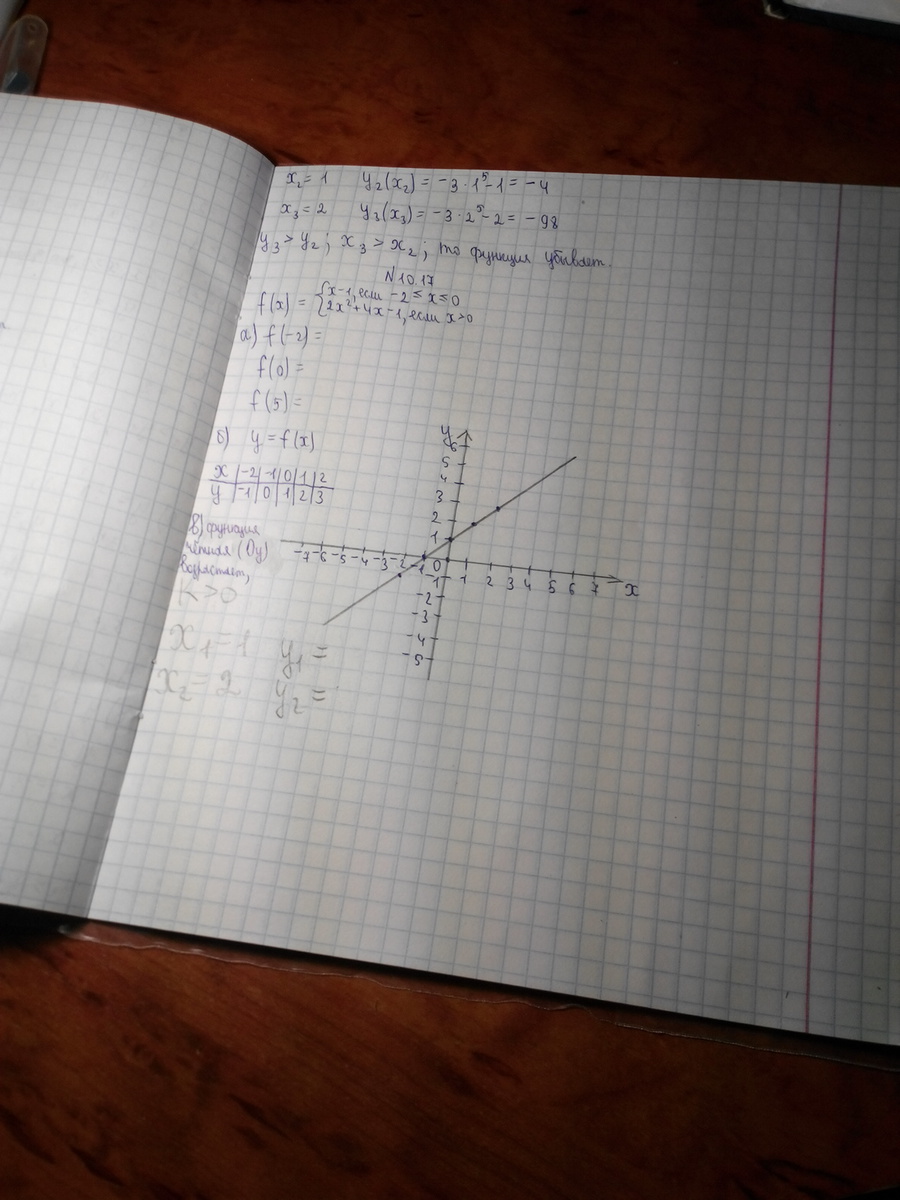 x₂ = 1 y₂(x₂) = -3·1⁵-1 = -4
x₃ = 2 y₃(x₃) = -3·2⁵-2 = -98
y₃ > y₂; x₃ > x₂; то функция убывает.
N 10.17
f(x) = { x-1, если -2 ≤ x ≤ 0
2x²+4x-1, если x>0
а) f(-2) =
f(0) =
f(5) =
б) y = f(x)
x -2 -1 0 1 2
y -1 0 1 2 3
в) функция
чётная (Oy)
возрастает,
k > 0
x₁ = 1 y₁ =
x₂ = 2 y₂ =
y
6
5
4
3
2
1
-7 -6 -5 -4 -3 -2 -1 0 1 2 3 4 5 6 7 x
-1
-2
-3
-4
-5